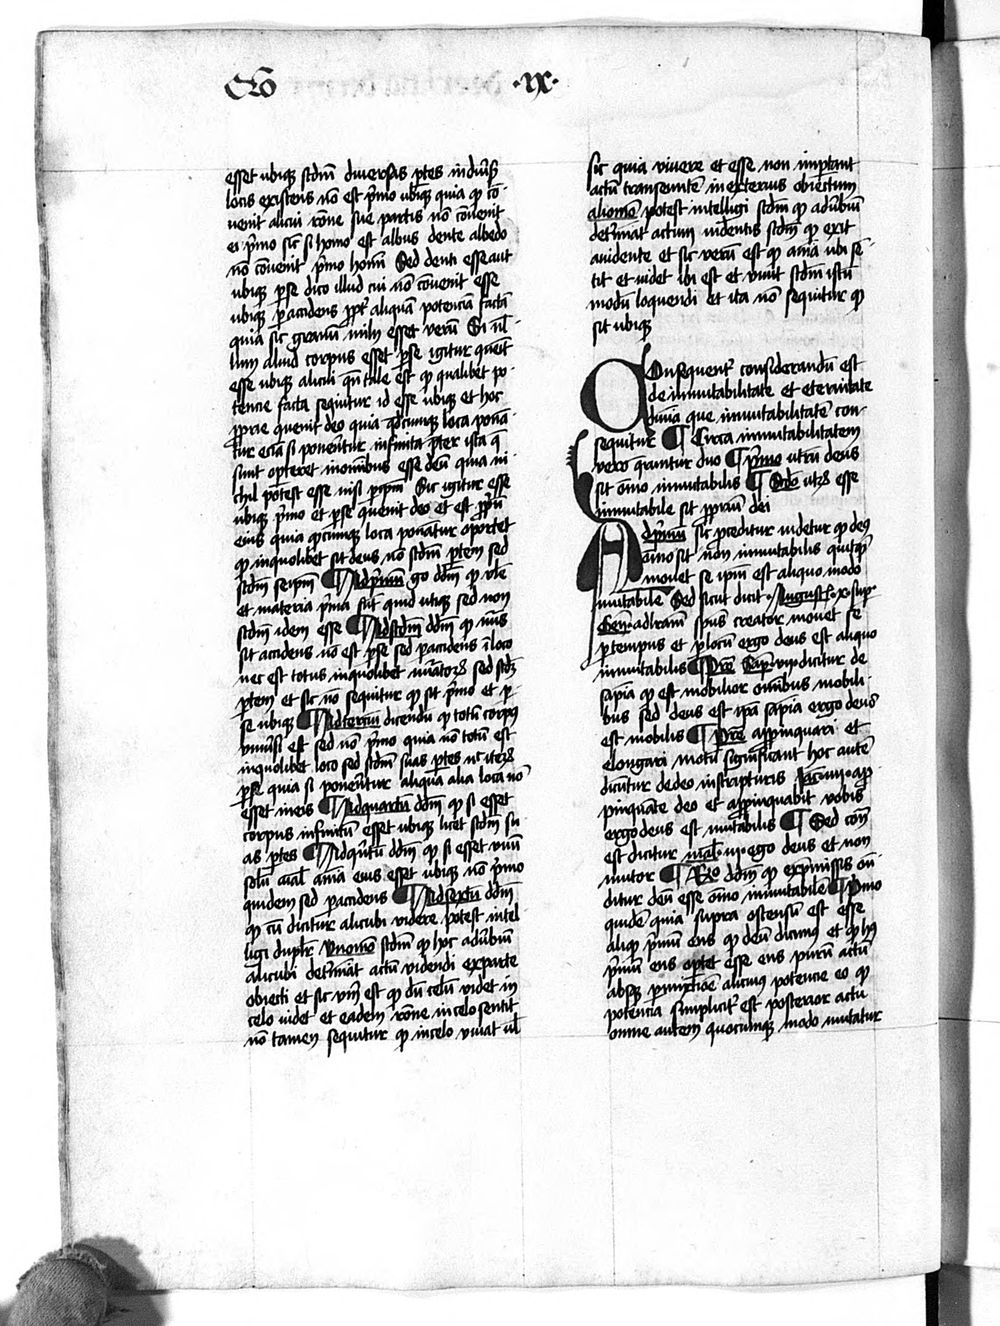 Qo .ix.
esset ubiq; scdm̄ diversas ptes in diūsis
locis existens nō est pͥmo ubiq; quia qd̕ cō-
venit alicui rōne sue partis nō cōvenit
ei pͥmo sic si homo est albus dente albedo
nō cōvenit pͥmo homī Sed denti esse aūt
ubiq; p se dico illud cui nō cōvenit esse
ubiq; p accidens ppt̕ aliquā positionē factā
quia sic granum milij esset verū Si nl̄-
lum aliud corpus esset p se igitur quenit
esse ubiq; alicui qn̄ tale est qd̕ qualibet po-
tencie facta sequitur id esse ubiq; et hoc
pprie quenit deo quia qd̕cumq; loca ponā-
tur ecia si ponerentur infinita pter ista q̄
sunt opteret in omibus esse deū quia ni-
chil potest esse nisi p ipm̄ Sic igitur esse
ubiq; pͥmo et p se quenit deo et est ppͥū
eius quia qd̕cumq; loca ponātur oportet
qd̕ in quolibet sit deus nō scdm̄ ptem sed
scdm̄ seipm̄ ¶ Ad pͥmū go dd̄m qd̕ vl̄e
et materia pͥma sūt quid ubiq; sed non
scdm̄ idem esse ¶ Ad scdm̄ dd̄m qd̕ nūs
sit accidens nō est p se sed p accidens ī loco
nec est totus in quolibet nūatorꝝ sed scd̄z
ptem et sic nō sequitur qd̕ sit pͥmo et p
se ubiq; ¶ Ad terciū dicendū qd̕ totū corpus
vniūsi est sed nō pͥmo quia nō totū est
in quolibet loco sed scdm̄ suas ptes nec iterū
p se quia si ponerentur aliqua alia loca nō
esset in eis ¶ Ad quartū dd̄m qd̕ si esset
corpus infinitū esset ubiq; licet scdm̄ su-
as ptes ¶ Ad qͥntū dd̄m qd̕ si esset vnū
solū aīal aīa eius esset ubiq; nō pͥmo
quidem sed p accidens ¶ Ad sextū dd̄m
qd̕ cū dicitur alicubi videre potest intel
ligi duplr̄ vno mō scdm̄ qd̕ hoc adūbiū
alicubi det̕mīat actū videndi ex parte
obiecti et sic vm̄ est qd̕ dū celū videt in
celo videt et eadem rōne in celo sentit
nō tamen sequitur qd̕ in celo vivat vl̄
sic quia vivere et esse non imptant
actū transeuntē in exterius obiectum
alio mō potest intelligi scdm̄ qd̕ adūbiū
det̕mīat actum videntis scdm̄ qd̕ exit
a vidente et sic verū est qd̕ aīa ubi sē-
tit et videt ibi est et vivit scdm̄ istū
modū loquendi et ita nō sequitur qd̕
sit ubiq;
COnsequent̕ considerandū est
de inmutabilitate et eternitate
divīa que inmutabilitatē con-
sequitur ¶ Circa inmutabilitatem
vero qruntur duo ¶ pͥmo utrū deus
sit oīno inmutabilis ¶ Scdo utrū esse
inmutabile sit ppriū dei
Ad pͥmū sic pceditur videtur qd̕ deus
oīno sit non inmutabilis quitqͥd
movet se ipm̄ est aliquo modo
mutabile Sed sicut dicit Augustꝰ .x. sup
Gen̄. ad lr̄am spūs creator movet se
p tempus et p locū ergo deus est aliquo
mutabilis ¶ Prē Sap̄. vij dicitur de
sapīa qd̕ est mobilior omībus mobili-
bus sed deus est ipa sapīa ergo deus
est mobilis ¶ Prē appinquari et
elongari motū significant hoc autē
dicuntur de deo in scripturis Jac̄. iiij. ap-
pinquate deo et appinquabit vobis
ergo deus est mutabilis ¶ Sed con̄
est dicitur mal̄. iij. ego deus et non
mutor ¶ Rēo dd̄m qd̕ ex pmissis on̄-
ditur deū esse oīno inmutabile ¶ Pͥmo
quidē quia supra ostensū est esse
aliqd̕ pͥmū ens qd̕ deū dicimus et qd̕ hͥ9
pͥmū ens optet esse ens purū actū
absq; pmixtiōe alicuius potencie eo qd̕
potencia simplicit̕ est posterior actu
omne autem quocumq; modo mutatur